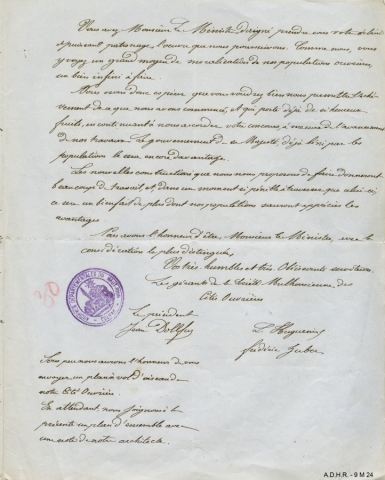 Vous avez Monsieur le Ministre daigné prendre sous votre
puissant patronage, l'œuvre que nous poursuivons. Comme nous, vous
y voyez un grand moyen de moralisation de nos populations ouvrières,
un bien infini à faire.
Nous avons donc espérer que vous voudrez bien nous permettre l'achè-
vement de ce que nous avons commencé, et qui porte déjà de si heureux
fruits, en continuant à nous accorder votre concours, à mesure de l'avancement
de nos travaux. Le gouvernement de sa Majesté, déjà béni par les
populations le sera encore davantage.
Les nouvelles constructions que nous nous proposons de faire donneront
beaucoup de travail et, dans un moment si pénible à traverser que celui-ci
ce sera un bienfait de plus dont nos populations sauront apprécier les
avantages.
Nous avons l'honneur d'être, Monsieur le Ministre, avec la
considération la plus distinguée,
Vos très humbles et très Obéissants serviteurs
Les gérants de la Société Mulhousienne des
Cités Ouvrières
Le président
Jean Dollfus
L. Huguenin
Frédéric Zuber
30
Sous peu nous aurons l'honneur de vous
envoyer, un plan à vol d'oiseau de
notre Cité Ouvrière.
En attendant, nous joignons à la
présente un plan d'ensemble avec
une note de notre architecte.
A.D.H.R. - 9 M 24